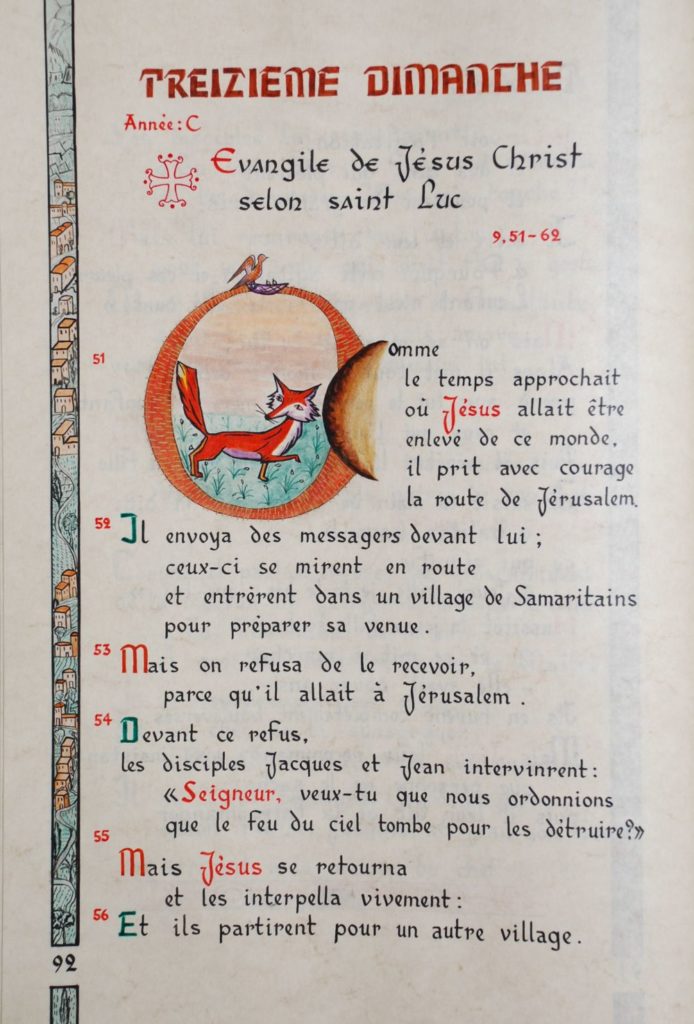 TREIZIEME DIMANCHE
Année : C
Evangile de Jésus Christ
selon saint Luc
9,51-62
51
Comme
le temps approchait
où Jésus allait être
enlevé de ce monde,
il prit avec courage
la route de Jérusalem.
52 Il envoya des messagers devant lui ;
ceux-ci se mirent en route
et entrèrent dans un village de Samaritains
pour préparer sa venue.
53 Mais on refusa de le recevoir,
parce qu'il allait à Jérusalem.
54 Devant ce refus,
les disciples Jacques et Jean intervinrent :
«Seigneur, veux-tu que nous ordonnions
que le feu du ciel tombe pour les détruire?»
55 Mais Jésus se retourna
et les interpella vivement :
56 Et ils partirent pour un autre village.
92